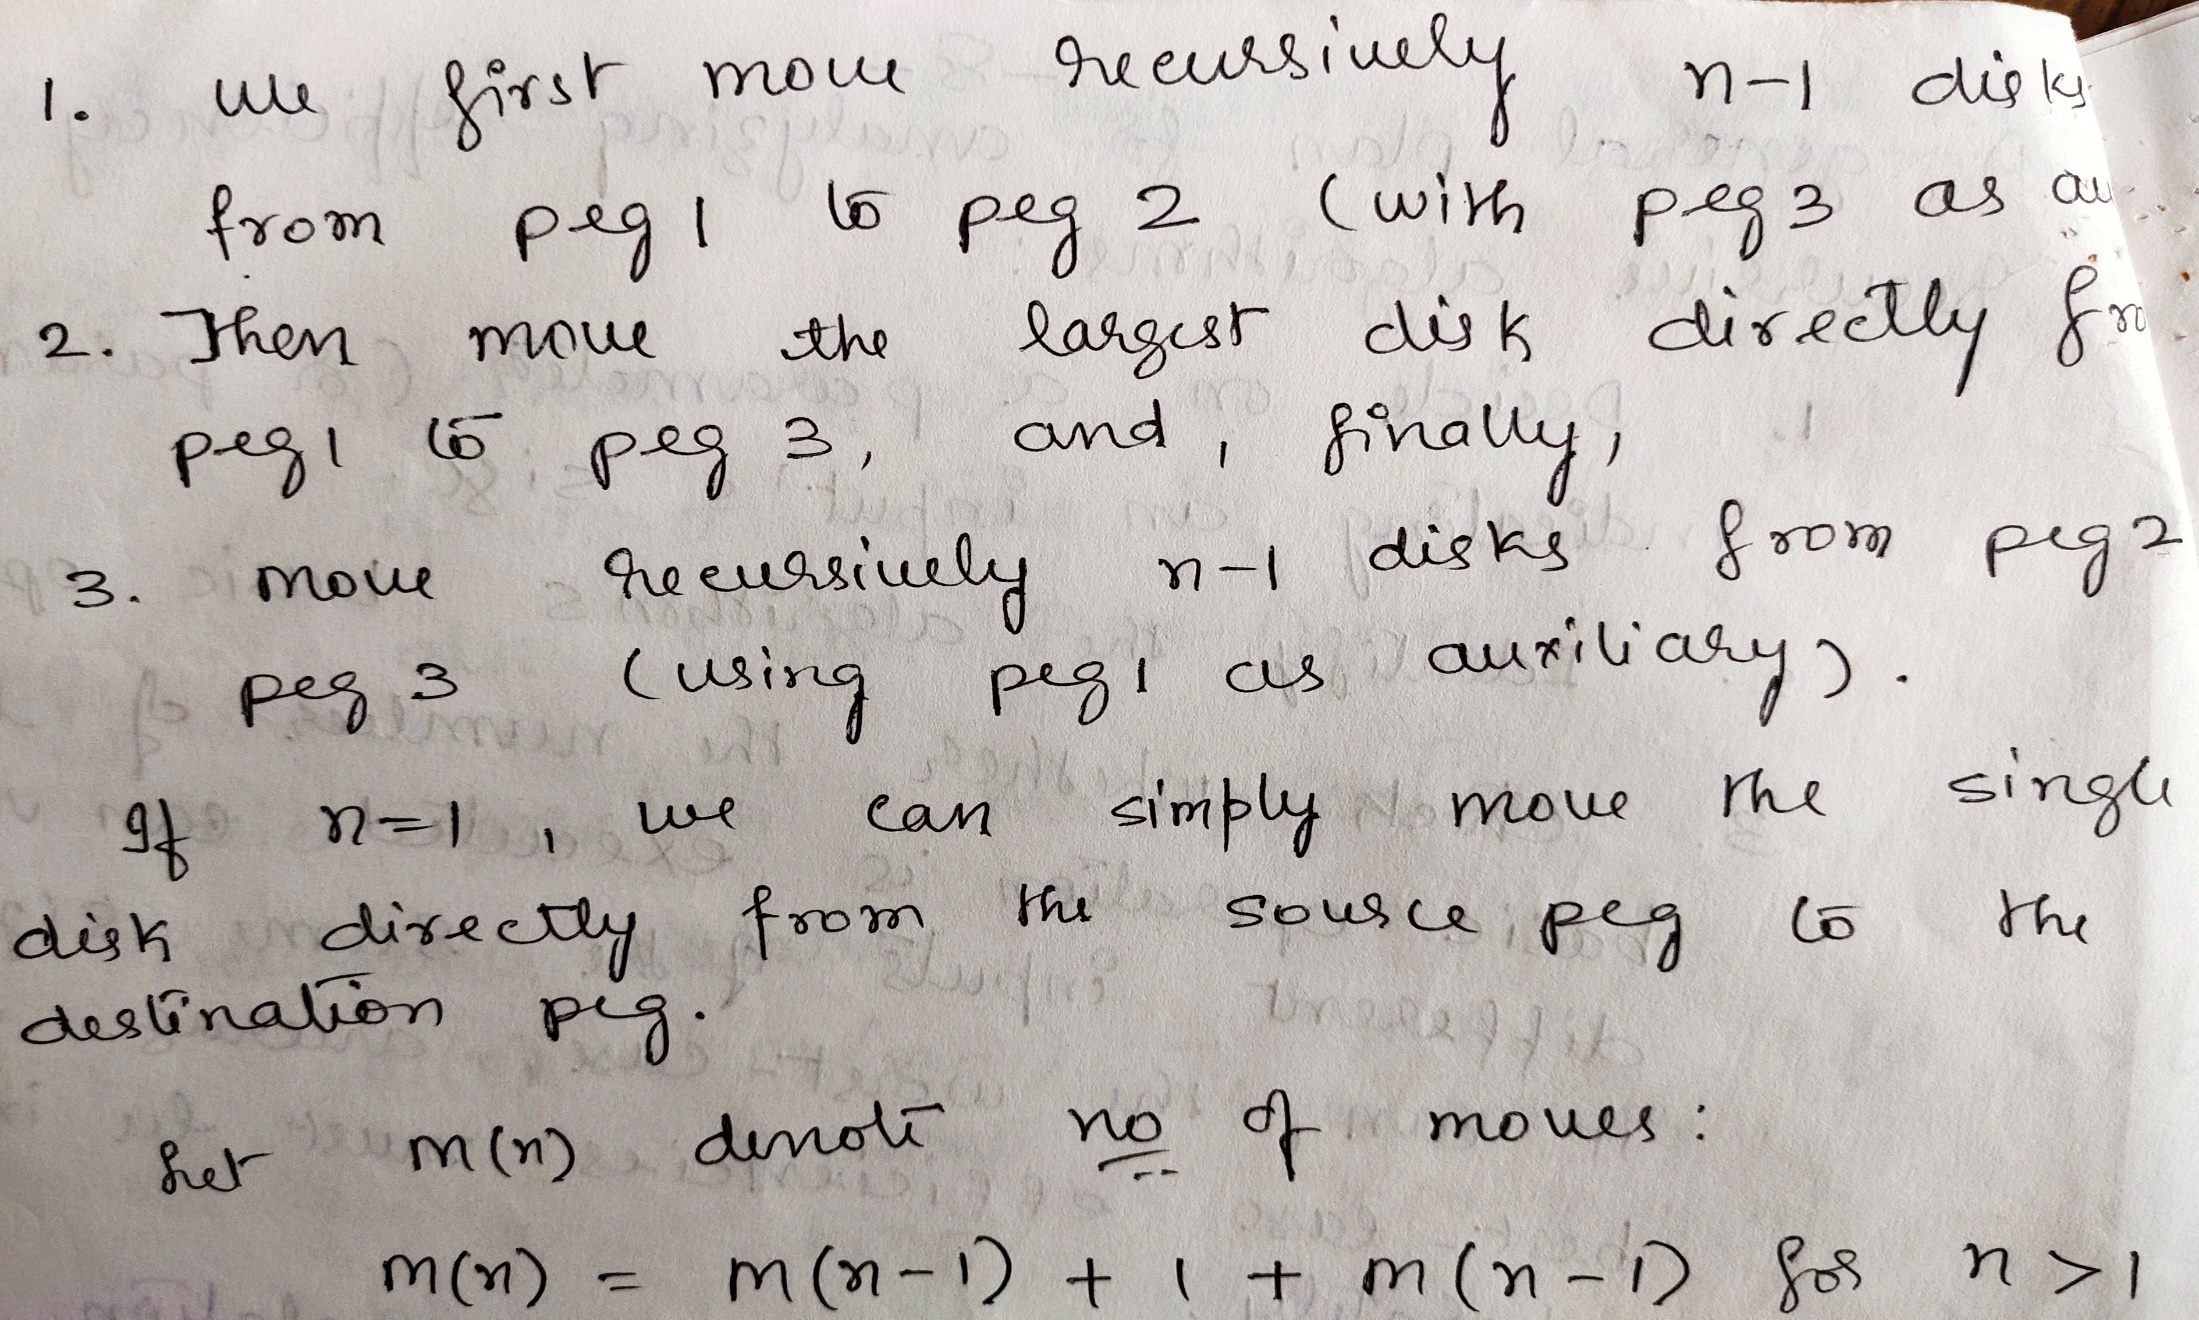 1. We first move recurssively n-1 disks
from peg 1 to peg 2 (with peg 3 as au
2. Then move the largest disk directly fro
peg 1 to peg 3, and, finally,
3. move recurssively n-1 disks from peg 2
peg 3 (using peg 1 as auxiliary).
If n=1, we can simply move the single
disk directly from the source peg to the
destination peg.
Let m(n) denote no of moves:
m(n) = m(n-1) + 1 + m(n-1) for n>1